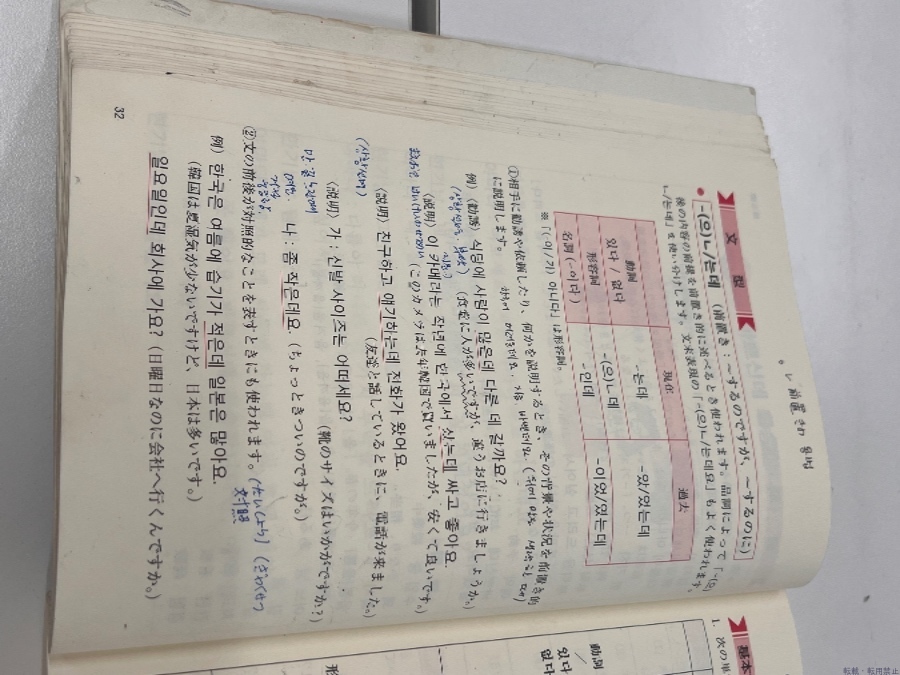 文型
-(으)ㄴ/는데 (前置き：～するのですが、～するのに)
後の内容の前提を前置き的に述べるとき使われます。品詞によって「-(으)
ㄴ/는데」を使い分けします。文末表現の「-(으)ㄴ/는데요」もよく使われます。
現在 過去
動詞 -는데 -았/었는데
있다/없다
形容詞 -(으)ㄴ데
名詞(-이다) -인데 -이었/였는데
※「(-이/가) 아니다」は形容詞。
①相手に勧誘や依頼したり、何かを説明するとき、その背景や状況を前置き的
に説明します。
例)〈勧誘〉식당에 사람이 많은데 다른 데 갈까요?
(食堂に人が多いですが、違うお店に行きましょうか。)
〈説明〉이 카메라는 작년에 한국에서 샀는데 싸고 좋아요.
(このカメラは去年韓国で買いましたが、安くて良いです。)
〈説明〉친구하고 얘기하는데 전화가 왔어요.
(友達と話しているときに、電話が来ました。)
〈説明〉가：신발 사이즈는 어떠세요? (靴のサイズはいかがですか?)
나：좀 작은데요. (ちょっときついのですが。)
②文の前後が対照的なことを表すときにも使われます。
対照
例) 한국은 여름에 습기가 적은데 일본은 많아요.
(韓国は夏湿気が少ないですけど、日本は多いです。)
일요일인데 회사에 가요? (日曜日なのに会社へ行くんですか。)
32
基本
1. 次の単
動詞
있다/
없다
形
転載・転用禁止